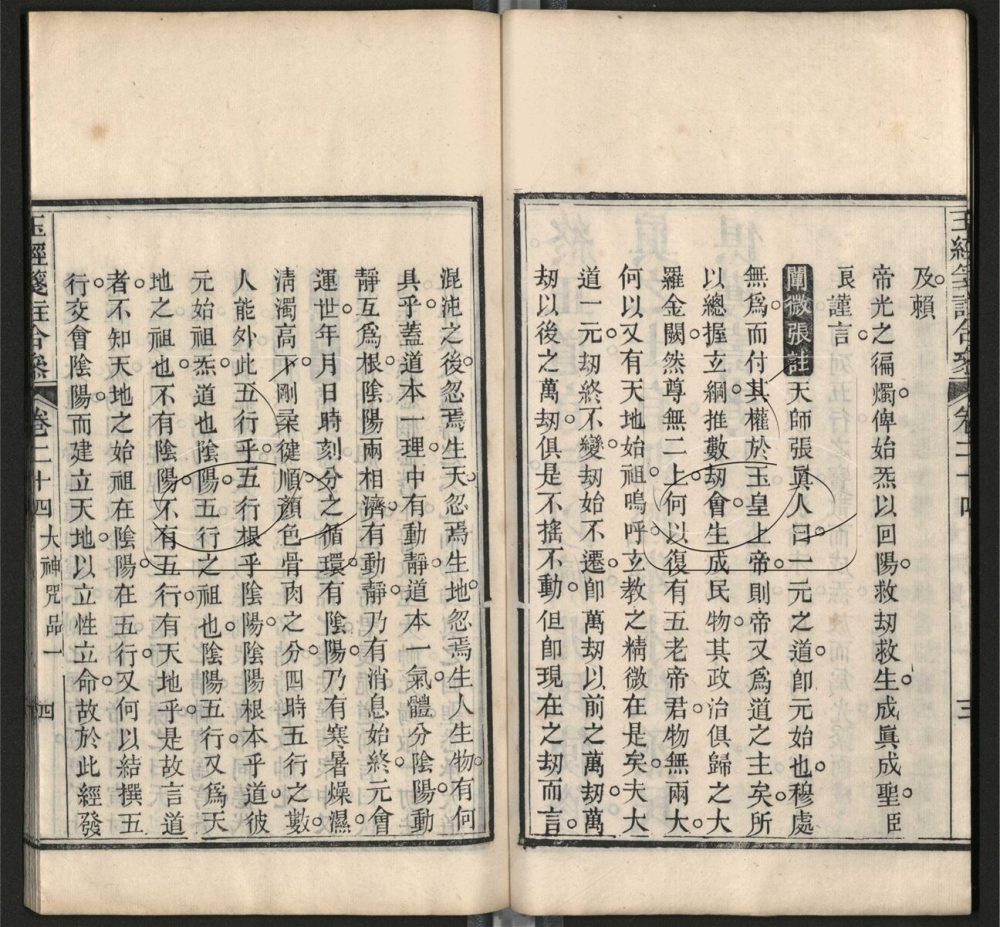 玉經箋註合參 卷二十四 三
及賴
帝光之徧燭。俾始炁以回陽。救劫救生。成眞成聖。臣
良謹言。
闡微張註 天師張眞人曰。一元之道。卽元始也。穆處
無爲。而付其權於玉皇上帝。則帝又爲道之主矣。所
以總握玄綱。推數劫會。生成民物。其政治俱歸之大
羅金闕。然尊無二上。何以復有五老帝君。物無兩大。
何以又有天地始祖。嗚呼。立教之精微在是矣。夫大
道一元。劫終不變。劫始不遷。卽萬劫以前之萬劫。萬
劫以後之萬劫。俱是不搖不動。但卽現在之劫而言。
混沌之後。忽焉生天。忽焉生地。忽焉生人生物。有何
具乎。蓋道本一理。中有動靜。道本一氣。體分陰陽。動
靜互爲根。陰陽兩相濟。有動靜。乃有消息始終。元會
運世。年月日時刻分之循環。有陰陽。乃有寒暑燥濕。
淸濁高下。剛柔健順。顏色骨肉之分。四時五行之數。
人能外此五行乎。五行根乎陰陽。陰陽根本乎道。彼
元始祖炁。道也。陰陽五行之祖也。陰陽五行。又爲天
地之祖也。不有陰陽。不有五行。有天地乎。是故言道
者。不知天地之始祖在陰陽。在五行。又何以結撰五
行。交會陰陽。而建立天地。以立性立命。故於此經發
玉經箋註合參 卷二十四 大神咒品一 四